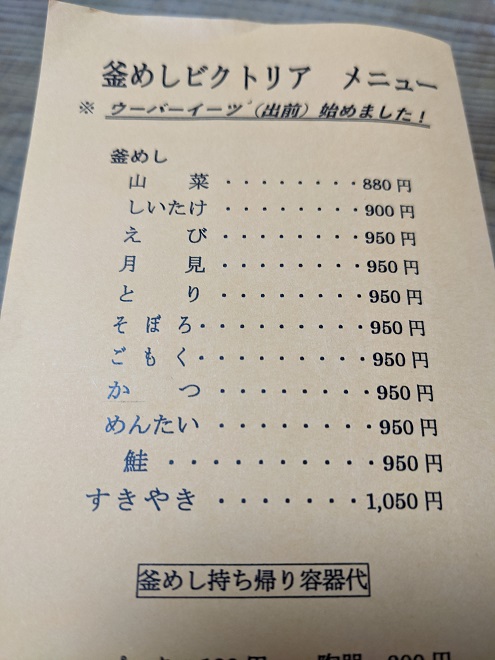 釜めしビクトリア メニュー
※ ウーバーイーツ (出前) 始めました!
釜めし
山 菜 ・・・・・・・・880円
しいたけ ・・・・・・・・900円
え び ・・・・・・・・950円
月 見 ・・・・・・・・950円
と り ・・・・・・・・950円
そ ぼ ろ・・・・・・・・・950円
ご も く・・・・・・・・・950円
か つ ・・・・・・・・950円
めんたい ・・・・・・・・950円
鮭 ・・・・・・・・・・950円
すきやき ・・・・・・・1,050円
釜めし持ち帰り容器代